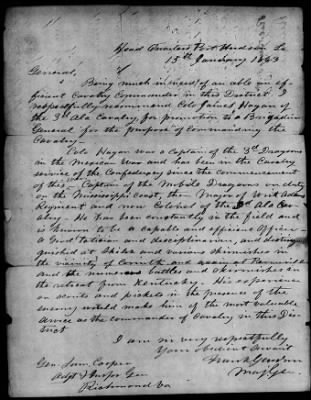 Head Quarters Port Hudson La
15th January 1863
General,
Being much in need of an able an ef-
ficient Cavalry Commander in this District I
respectfully recommend Col James Hagan of
the 3d Ala Cavalry, for promotion to a Brigadier
General for the purpose of commanding the
Cavalry
Colo Hagan was a Captain of the 3d Dragoons
in the Mexican War and has been in the Cavalry
service of the Confederacy since the commencement
of this Captain of the Mobile Dragoons on duty
on the Mississippi Coast, then Major of Wirt Adams
Regiment and now Colonel of the 3d Ala Cav-
alry. He has been constantly in the field and
is known to be a capable and efficient Officer
A Good Tactician and disciplinarian, and distin-
guished at Shiloh and various skirmishes in
the vicinity of Corinth and away at
and the numerous battles and skirmishes in
the retreat from Kentucky. His experience
on scouts and pickets in the presence of the
enemy would make him of the most valuable
service as the commander of Cavalry in this Dis-
trict
I am very respectfully
Your obedient Servant
Frank Gardner
Maj Gen
Gen Sam Cooper
Adjt & Inspr Gen
Richmond Va